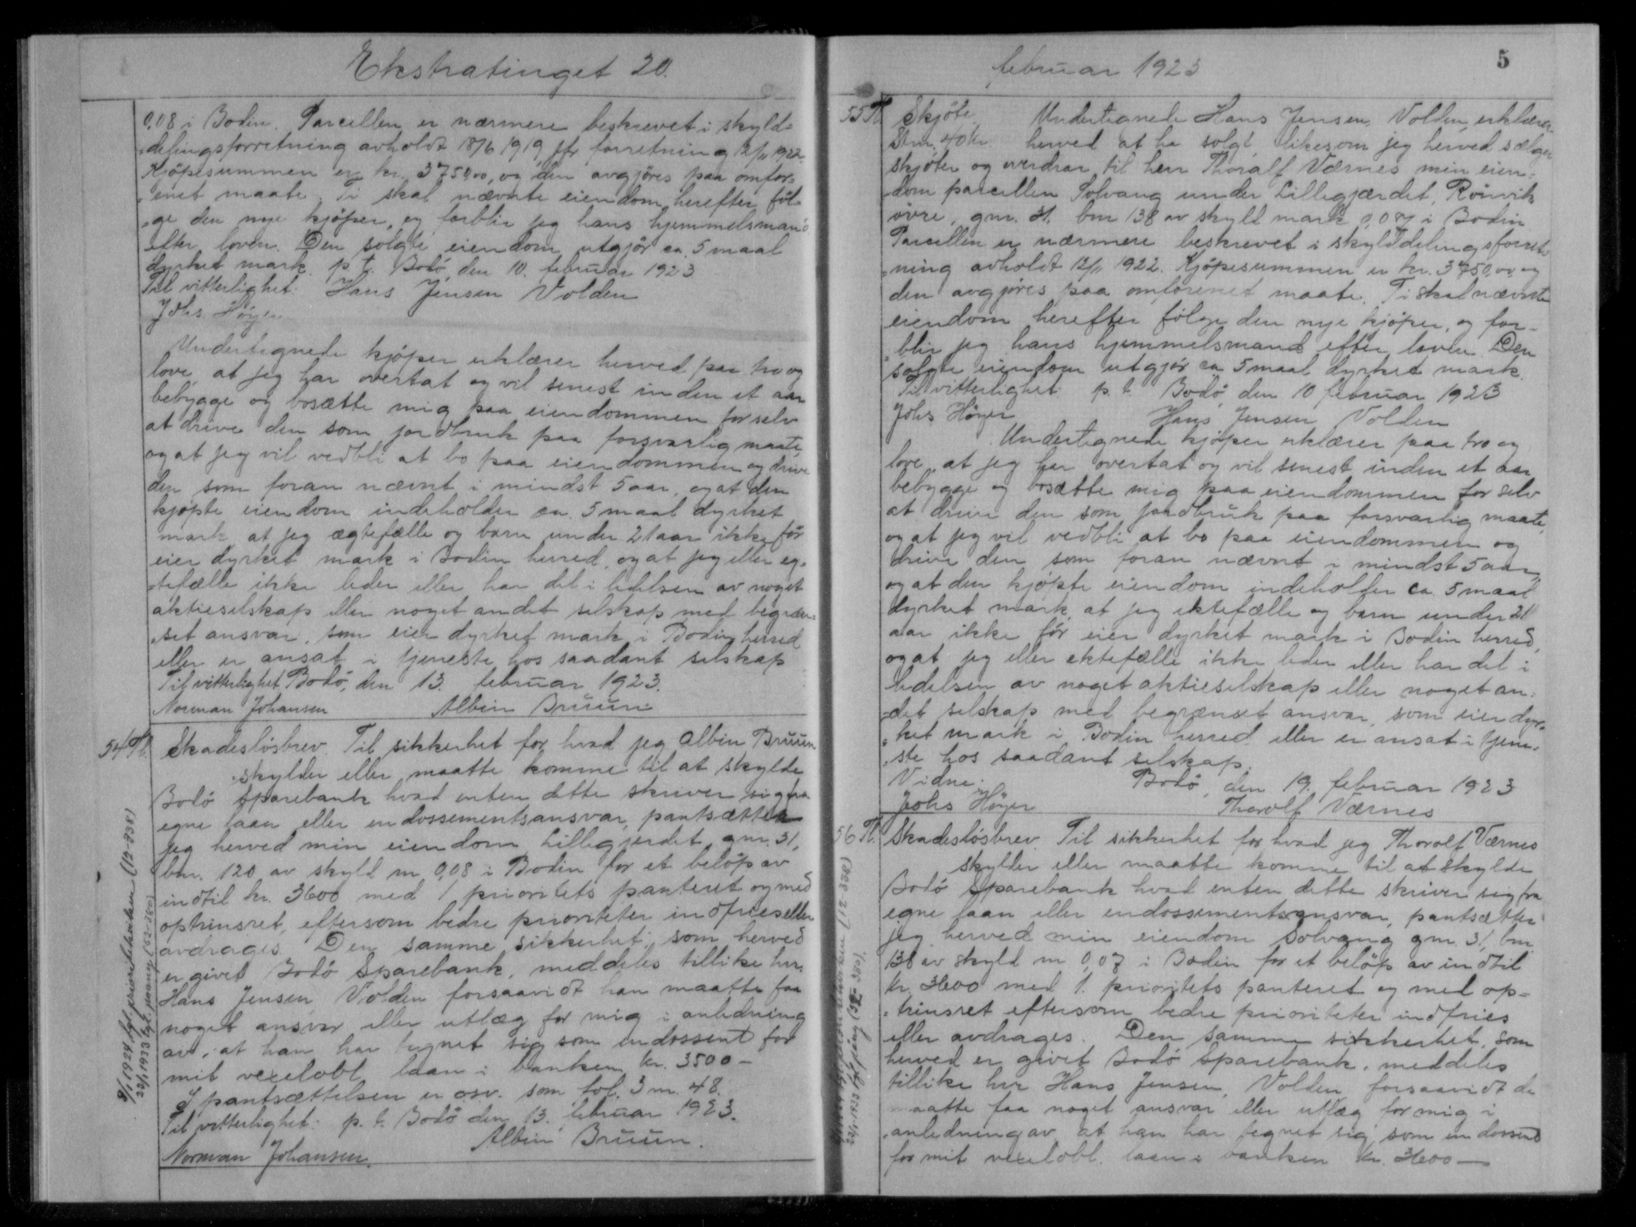 Ekstratinget 20.
0,08 i Bodin. Parcellen er nærmere beskrevet i skyld-
delingsforretning avholdt 18/6 1919, jfr forretning 12/11 1922.
Kjöpesummen er kr. 3750,00, og den avgjöres paa omfor-
enet maate. Ti skal nævnte eiendom herefter föl-
ge den nye kjöper, og forblir jeg hans hjemmelsmand
efter loven. Den solgte eiendom utgjör ca. 5 maal
dyrket mark. p. t. Bodö, den 10. februar 1923
Til vitterlighet: Hans Jensen Volden
Johs Höyer
Undertegnede kjöper erklærer herved paa tro og
love, at jeg har overtat og vil senest inden et aar
bebygge og bosætte mig paa eiendommen for selv
at drive den som jordbruk paa forsvarlig maate,
og at jeg vil vedbli at bo paa eiendommen og drive
den som foran nævnt i mindst 5 aar, og at den
kjöpte eiendom indeholder ca. 5 maal dyrket
mark, at jeg ægtefælle og barn under 21 aar ikke för
eier dyrket mark i Bodin herred, og at jeg eller eg-
tefælle ikke leder eller har del i ledelsen av noget
aktieselskap eller noget andet selskap med begræn-
set ansvar, som eier dyrket mark i Bodin herred
eller er ansat i tjeneste hos saadant selskap
Til vitterlighet Bodö, den 13. februar 1923.
Norman Johansen Albin Bruun
54 Tl. Skadeslösbrev. Til sikkerhet for hvad jeg Albin Bruun
skylder eller maatte komme til at skylde
Bodö Sparebank hvad enten dette skriver sig fra
egne laan eller endossementsansvar, pantsætter
jeg herved min eiendom Lillegjerdet, gnr. 31,
bnr. 120 av skyld m. 0,08 i Bodin for et belöp av
indtil kr. 3600 med 1 prioritets panteret og med
optrinsret, eftersom bedre prioriteter indfries eller
avdrages. Den samme sikkerhet, som herved
er givet Bodö Sparebank, meddeles tillike hr.
Hans Jensen Volden forsaavidt han maatte faa
noget ansvar eller utlæg for mig i anledning
av, at han har tegnet sig som endossent for
mit vexelobl. laan i banken kr. 3500 -
I pantsættelsen er osv. som fol. 3 m. 48.
Til vitterlighet: p. t. Bodö den 13. februar 1923.
Albin Bruun.
Norman Johansen.
februar 1923
5
55 Tl. Skjöte Undertegnede Hans Jensen Volden, erklærer
St.m. 40 kr herved at ha solgt, likesom jeg herved sælger
skjöter og overdrar til herr Thoralf Værnes min eien-
dom parcellen Solvang under Lillegjærdet, Rönvik
övre, gnr. 31 bnr 138 av skyld mark 0,07 i Bodin
Parcellen er nærmere beskrevet i skylddelingsforret-
ning avholdt 12/11 1922. Kjöpesummen er kr. 3750,00 og
den avgjöres paa omforenet maate. Ti skal nævnte
eiendom herefter fölge den nye kjöper, og for-
blir jeg hans hjemmelsmand efter loven. Den
solgte eiendom utgjör ca 5 maal dyrket mark.
Til vitterlighet p. t. Bodö, den 10 februar 1923
Johs Höyer Hans Jensen Volden
Undertegnede kjöper erklærer paa tro og
love, at jeg har overtat og vil senest inden et aar
bebygge og bosætte mig paa eiendommen for selv
at drive den som jordbruk paa forsvarlig maate,
og at jeg vil vedbli at bo paa eiendommen og
drive den som foran nævnt i mindst 5 aar,
og at den kjöpte eiendom indeholder ca 5 maal
dyrket mark, at jeg ektefælle og barn under 21
aar ikke för eier dyrket mark i Bodin herred,
og at jeg eller ektefælle ikke leder eller har del i
ledelsen av noget aktieselskap eller noget an-
det selskap med begrænset ansvar, som eier dyr-
ket mark i Bodin herred eller er ansat i tjene-
ste hos saadant selskap.
Vidne: Bodö, den 19. februar 1923
Johs Höyer Thorolf Værnes
56 Tl. Skadeslösbrev. Til sikkerhet for hvad jeg Thorolf Værnes
skylder eller maatte komme til at skylde
Bodö Sparebank hvad enten dette skriver sig fra
egne laan eller endossementsansvar, pantsætter
jeg herved min eiendom Solvang gnr. 31, bnr.
138 av skyld m 0,07 i Bodin for et belöp av indtil
kr. 3600 med 1. prioritets panteret og med op-
trinsret eftersom bedre prioriteter indfries
eller avdrages. Den samme sikkerhet, som
herved er givet Bodö Sparebank, meddeles
tillike hr Hans Jensen Volden, forsaavidt de
maatte faa noget ansvar eller utlæg for mig i
anledning av, at han har tegnet sig som endossent
for mit vexelobl. laan i banken kr. 3600 -